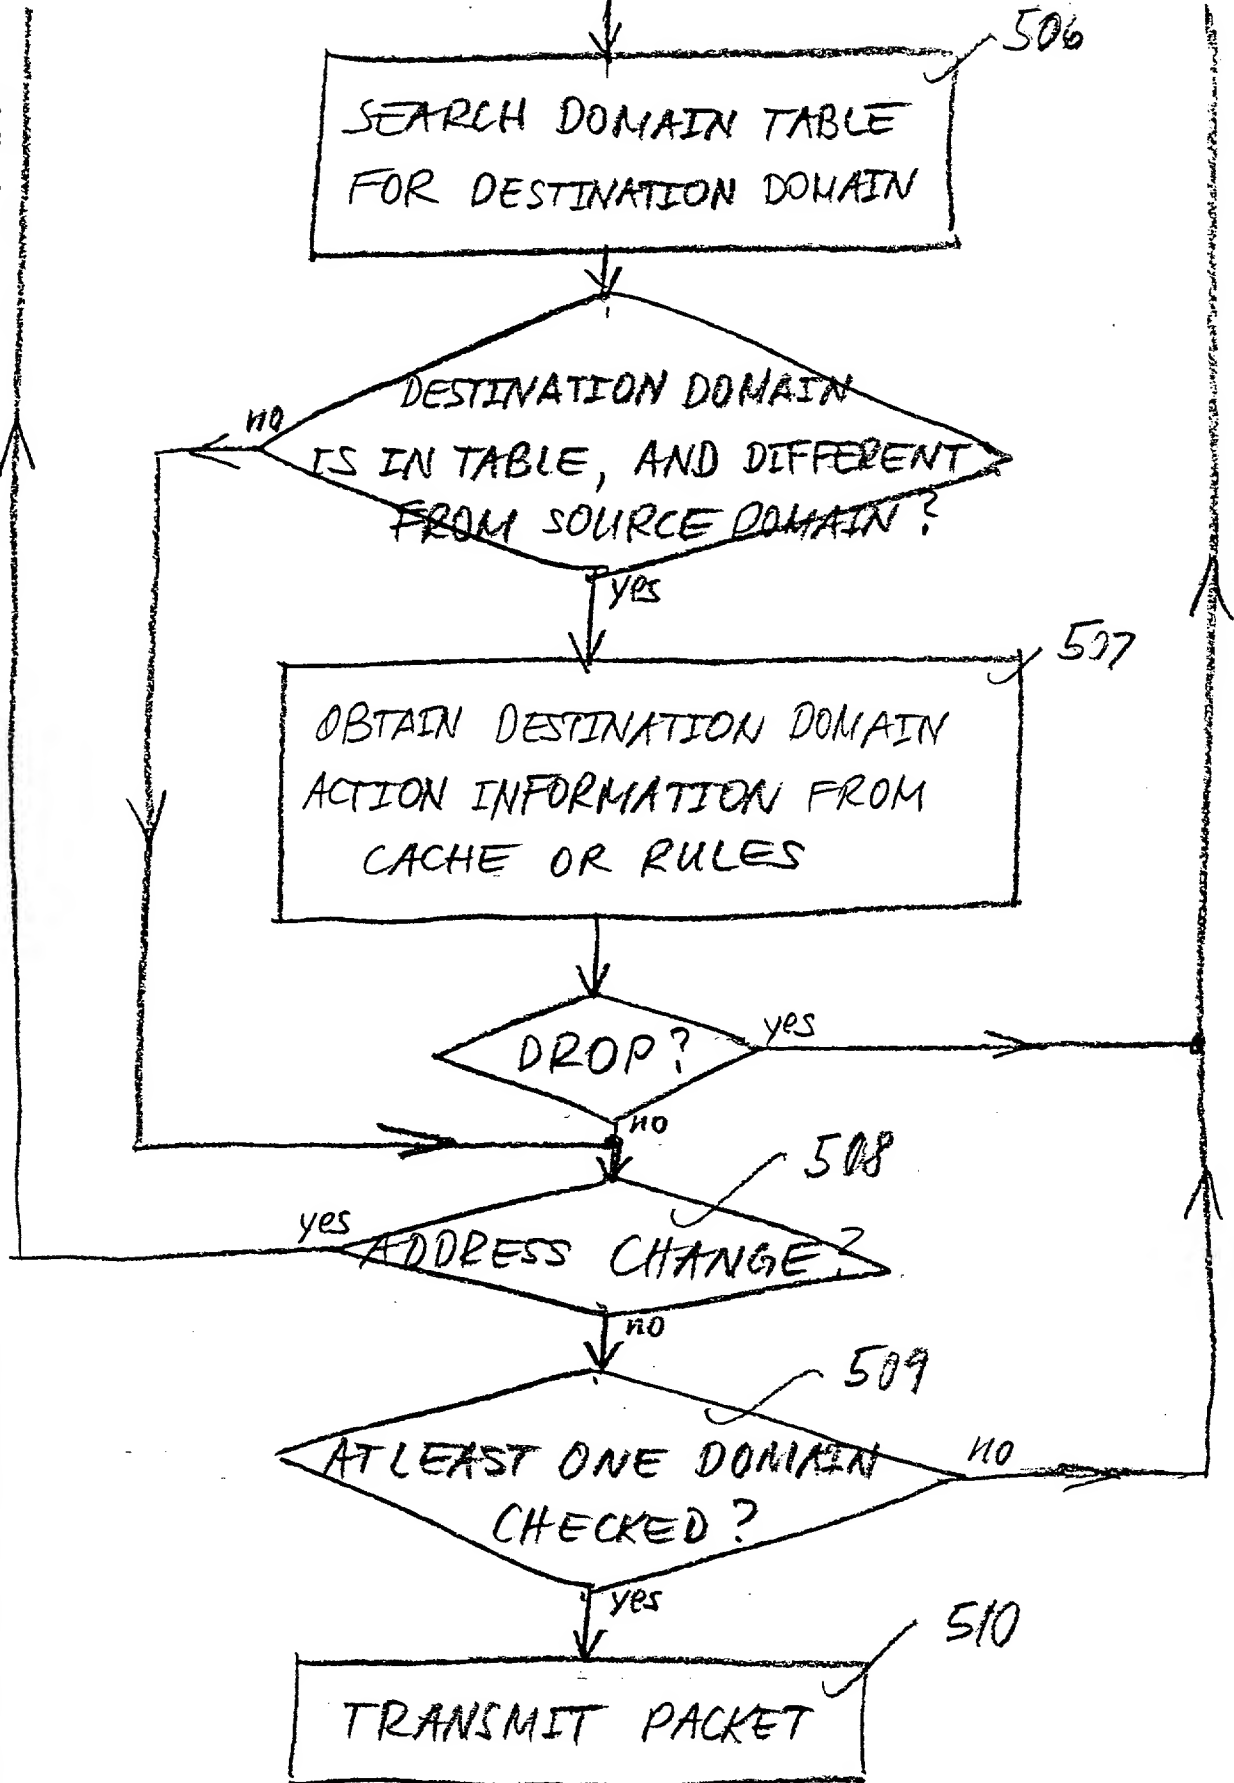 506
SEARCH DOMAIN TABLE
FOR DESTINATION DOMAIN
DESTINATION DOMAIN
no
IS IN TABLE, AND DIFFERENT
FROM SOURCE DOMAIN?
yes
507
OBTAIN DESTINATION DOMAIN
ACTION INFORMATION FROM
CACHE OR RULES
DROP?
yes
no
508
yes
ADDRESS CHANGE?
no
509
AT LEAST ONE DOMAIN
no
CHECKED?
yes
510
TRANSMIT PACKET